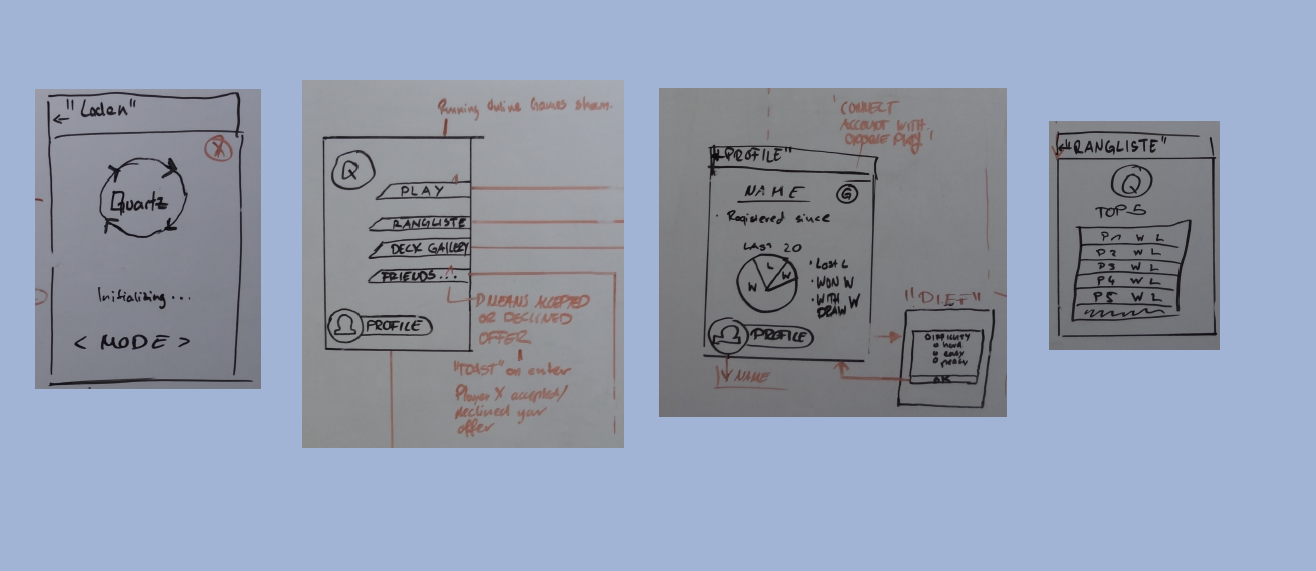 "Laden"
X
Quartz
Initializing...
< MODE >
Running Online Games shown.
Q
PLAY
RANGLISTE
DECK GALLERY
FRIENDS...
MEANS ACCEPTED
OR DECLINED
OFFER
"TOAST" on enter
Player X accepted/
declined your
offer
PROFILE
CONNECT
ACCOUNT WITH
GOOGLE PLAY!
"PROFILE"
NAME
G
• Registered since
LAST 20
L
W
W
• LOST L
• WON W
• WITH W
DRAW
PROFILE
NAME
DIFFICULTY
o hard
o easy
OK
"RANGLISTE"
Q
TOP-5
P1 W L
P2 W L
P3 W L
P4 W L
P5 W L